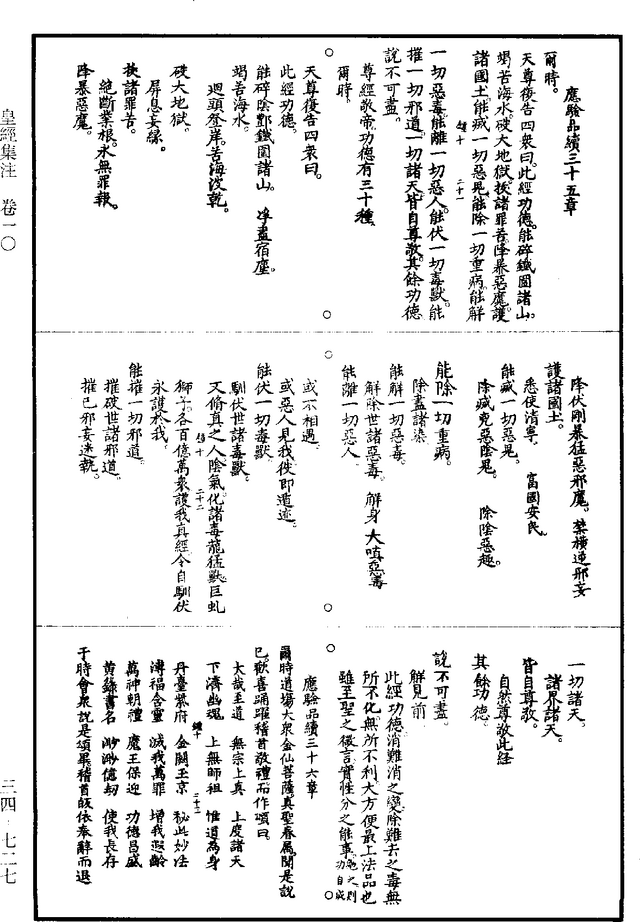 皇經集注 卷一〇
三四·七二七
應驗品續三十五章
爾時。
天尊復告四衆曰。此經功德。能碎鐵圍諸山。
竭苦海水。破大地獄。拔諸罪苦。降暴惡魔。護
諸國土。能滅一切惡鬼。能除一切重病。能解
一切惡毒。能離一切惡人。能伏一切毒獸。能
摧一切邪道。一切諸天。皆自尊敬。其餘功德
說不可盡。
爾時。
尊經敬帝。功德有三十種。
天尊復告四衆曰。
此經功德。
能碎陰鄷鐵圍諸山。 浄盡宿塵。
竭苦海水。
迴頭登岸。苦海波乾。
破大地獄。
屏息妄緣。
拔諸罪苦。
絕斷業根。永無罪報。
降暴惡魔。
降伏剛暴猛惡邪魔。禁橫逆邪妄
護諸國土。
悉使清寧。 富國安民。
能滅一切惡鬼。
除滅兇惡陰鬼。 除陰惡趣。
能除一切重病。
除盡諸染
能解一切惡毒。
解除世諸惡毒。 解身大嗔惡毒
能離一切惡人。
或不相遇。
或惡人見我。彼即遁迹。
能伏一切毒獸。
馴伏世諸毒獸。
又脩真之人陰氣。化諸毒龍猛獸巨虬
獅子。各百億萬衆。讚我真經。令自馴伏
永護於我。
能摧一切邪道。
摧破世諸邪道。
摧已邪妄迷執。
一切諸天。
諸界諸天。
皆自尊敬。
自然尊敬此經
其餘功德。
說不可盡。
解見前。
此經功德。消難消之變。除難去之毒。無
所不化。無所不利。大方便最上法品也
雖至聖之微言。實性分之能事。
應驗品續三十六章
爾時道場大衆。金仙菩薩。真聖眷屬。聞是說
已。歡喜踊躍。稽首敬禮。而作頌曰。
大哉至道 無宗上真 上度諸天
下濟幽魂 上無師祖 惟道為身
丹臺紫府 金闕玉京 秘此妙法
溥福含靈 滅我萬罪 增我遐齡
萬神朝禮 魔王保迎 功德昌盛
黃籙書名 渺渺億劫 使我長存
于時會衆。說是頌畢。稽首皈依。奉辭而退